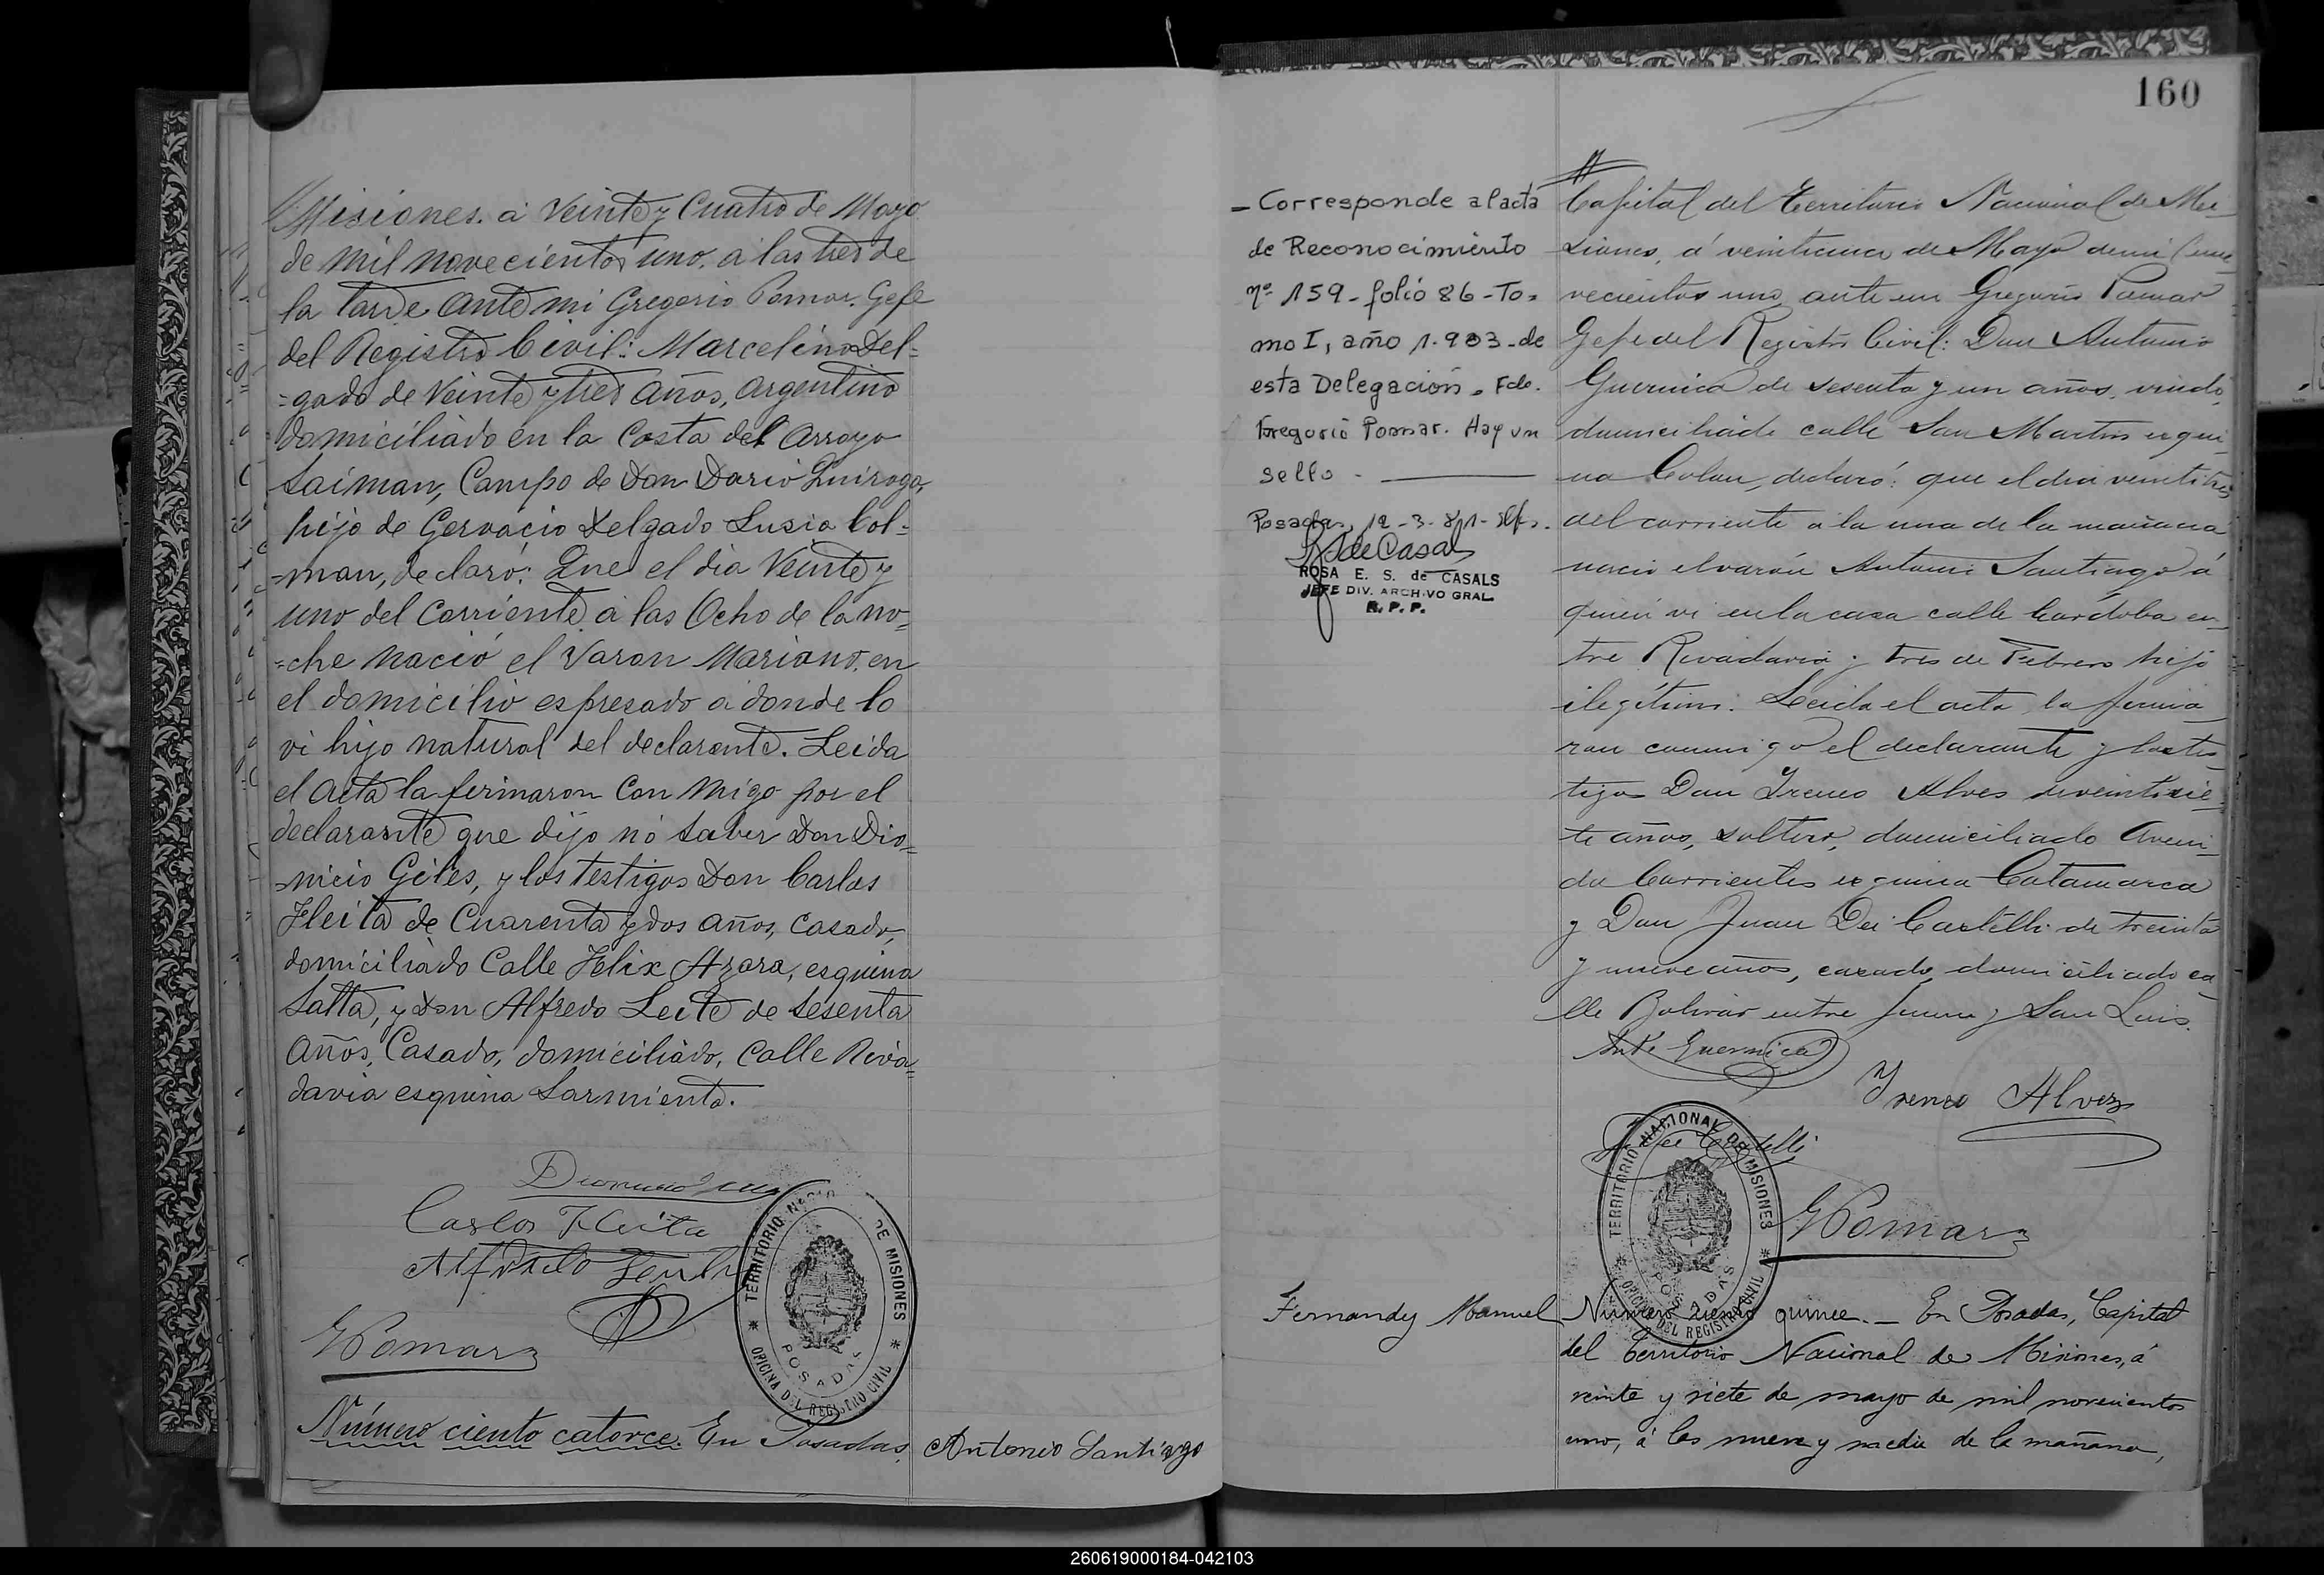 Misiones. á Veinte y Cuatro de Mayo
de mil novecientos uno. a las tres de
la tarde Ante mi Gregorio Pomar. Gefe
del Registro Civil: Marcelino Del=
=gado de Veinte y tres Años, Argentino
domiciliado en la Costa del Arroyo
Saiman, Campo de Don Dario Quiroga,
hijo de Gervacio Delgado Lusia Col=
=man, declaró: Que el dia Veinte y
uno del Corriente a las Ocho de la no=
=che nació el Varon Mariano. en
el domicilio espresado a donde lo
vi hijo natural del declarante. Leida
el Acta la firmaron Con migo por el
declarante que dijo no saber Don Dio=
=nicio Giles, y los testigos Don Carlos
Fleita de Cuarenta y dos Años, Casado,
domiciliado Calle Felix Azara, esquina
Salta, y Don Alfredo Leite de Sesenta
Años, Casado, domiciliado, Calle Riva=
davia esquina Sarmiento.
Carlos Fleita
GPomar
TERRITORIO NACIO DE MISIONES
POSADAS
OFICINA DEL REGISTRO CIVIL
Número ciento catorce. En Posadas,
Antonio Santiago
160
- Corresponde al acta
de Reconocimiento
nº 159 - folio 86 - To=
mo I, año 1.903 - de
esta Delegación. Fdo.
Gregorio Pomar. Hay un
sello -
Posadas, 12 - 3 - 81 -
R de Casals
ROSA E. S. de CASALS
JEFE DIV. ARCHIVO GRAL.
R. P. P.
Capital del Territorio Nacional de Mi-
siones, á veinticinco de Mayo de mil no-
vecientos uno, ante mi Gregorio Pomar
Gefe del Registro Civil: Don Antonio
Guernica de sesenta y un años, viudo,
domiciliado calle San Martin esqui-
na Colon, declaró: que el dia veintitres
del corriente a la una de la mañana
nació el varón Antonio Santiago á
quien vi en la casa calle Córdoba en-
tre Rivadavia y tres de Febrero hijo
ilegítimo. Leida el acta, la firma-
ron conmigo el declarante y los tes-
tigos Don Ireneo Alves de veintisie-
te años, soltero, domiciliado Aveni-
da Corrientes esquina Catamarca
y Don Juan Dei Castelli de treinta
y nueve años, casado, domiciliado ca-
lle Bolivar entre Junin y San Luis.
Anto Guernica
Ireneo Alvez
J Dei Castelli
TERRITORIO NACIONAL DE MISIONES
POSADAS
OFICINA DEL REGISTRO CIVIL
GPomar
Fernandez Manuel
Número ciento quince. - En Posadas, Capital
del Territorio Nacional de Misiones, á
veinte y siete de mayo de mil novecientos
uno, á las nueve y media de la mañana,
260619000184-042103